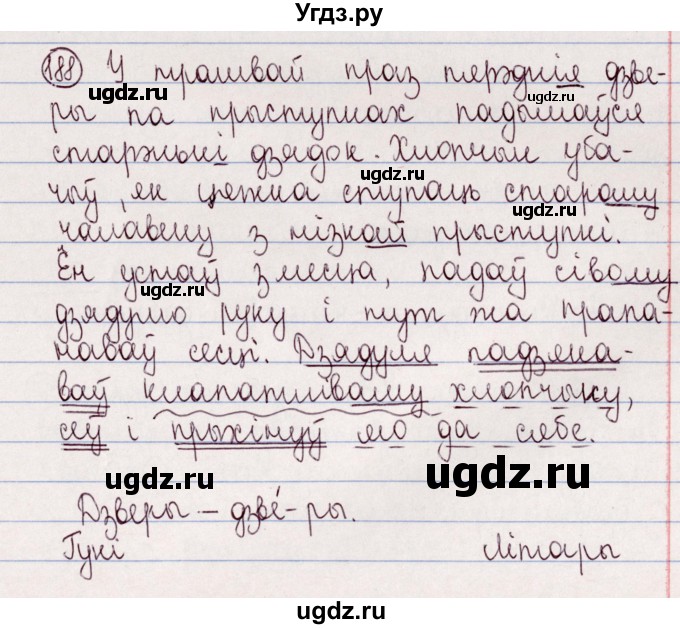 Угдз.ру
188 У трамвай праз пярэднія дзве-
ры па прыступках падымаўся
старэнькі дзядок. Хлопчык уба-
чыў, як цяжка ступаць старому
чалавеку з нізкай прыступкі.
Ён устаў з месца, падаў сівому
дзядулю руку і тут жа прапа-
наваў сесці. Дзядуля падзяка-
ваў клапатліваму хлопчыку,
сеў і прыхінуў яго да сябе.
Дзверы – дзве́-ры.
Гукі Літары
ugdz.ru
ugdz.ru
ugdz.ru
ugdz.ru
ugdz.ru
ugdz.ru
ugdz.ru
ugdz.ru
ugdz.ru